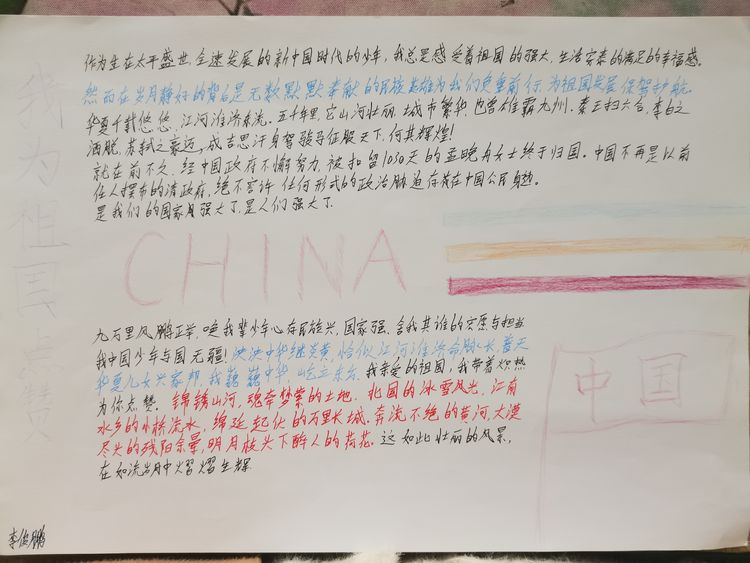 我为祖国点赞
作为生在太平盛世,全速发展的新中国时代的少年,我总是感受着祖国的强大,生活安泰的满足的幸福感。
然而在岁月静好的背后是无数默默奉献的民族英雄为我们负重前行,为祖国发展保驾护航。
华夏千载悠悠,江河淮济东流。五千年里,它山河壮丽,城市繁华,也曾雄霸九州。秦王扫六合,李白之
洒脱,苏轼之豪迈,成吉思汗身驾骏骑征服天下,何其辉煌!
就在前不久,经中国政府不懈努力,被扣留1030天的孟晚舟女士终于归国。中国不再是以前
任人摆布的清政府,绝不容许任何形式的政治胁迫存在中国公民身边。
是我们的国家强大了,是人们强大了.
CHINA
九万里风鹏正举,唤我辈少年心存民族兴,国家强,舍我其谁的宏愿与担当
我中国少年与国无疆!泱泱中华继炎黄,恰似江河淮济命脉长,普天
华夏儿女兴家邦,我巍巍中华屹立东方,我亲爱的祖国,我带着炽热
为你点赞。锦绣山河,魂牵梦萦的土地。北国的冰雪风光,江南
水乡的小桥流水,绵延起伏的万里长城,奔流不绝的黄河,大漠
尽头的残阳余晕,明月枝头下醉人的荷花。这如此壮丽的风景,
在如流岁月中熠熠生辉.
中国
李俊鹏